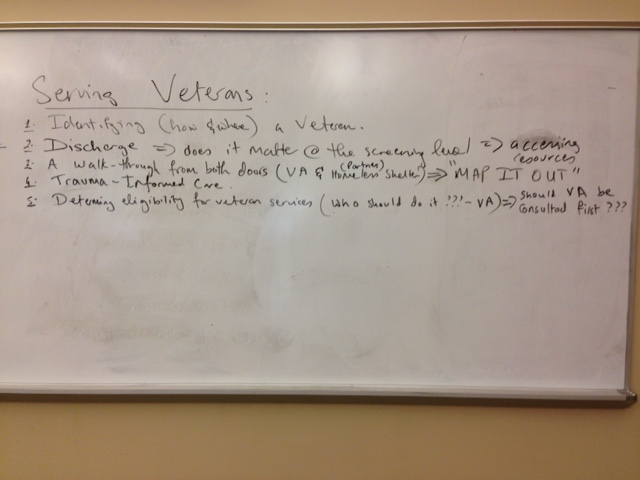 Serving Veterans:
1. Identifying (how & where) a Veteran.
2. Discharge => does it matte @ the screening level => accessing resources
3. A walk-through from both doors (VA & (Partner) Homeless Shelter) => "MAP IT OUT"
4. Trauma-Informed Care.
5. Determing eligibility for veteran services (who should do it ???-VA) => should VA be consulted first ???